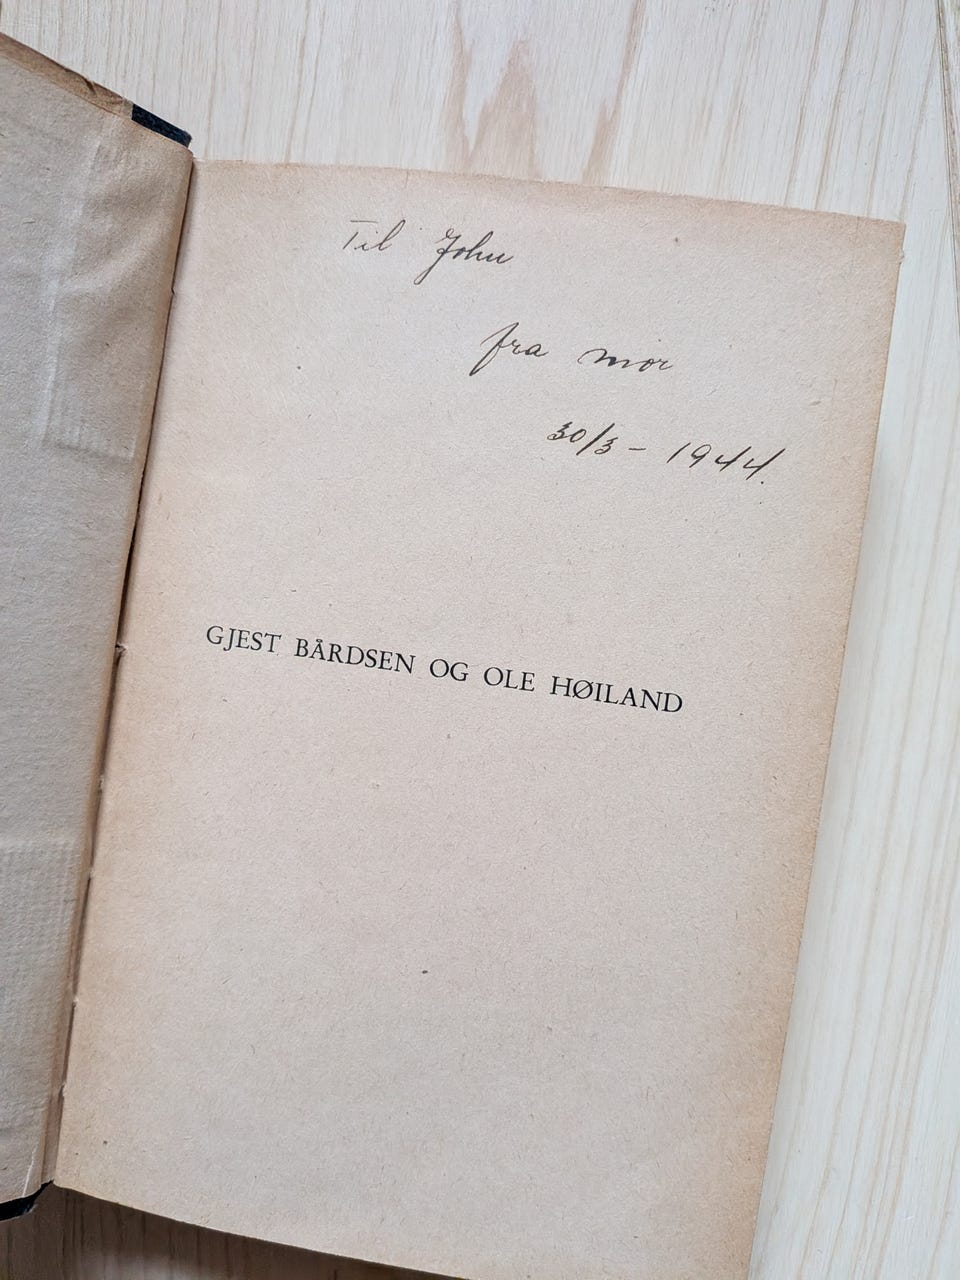 Til John
fra mor
30/3 - 1944.
GJEST BÅRDSEN OG OLE HØILAND